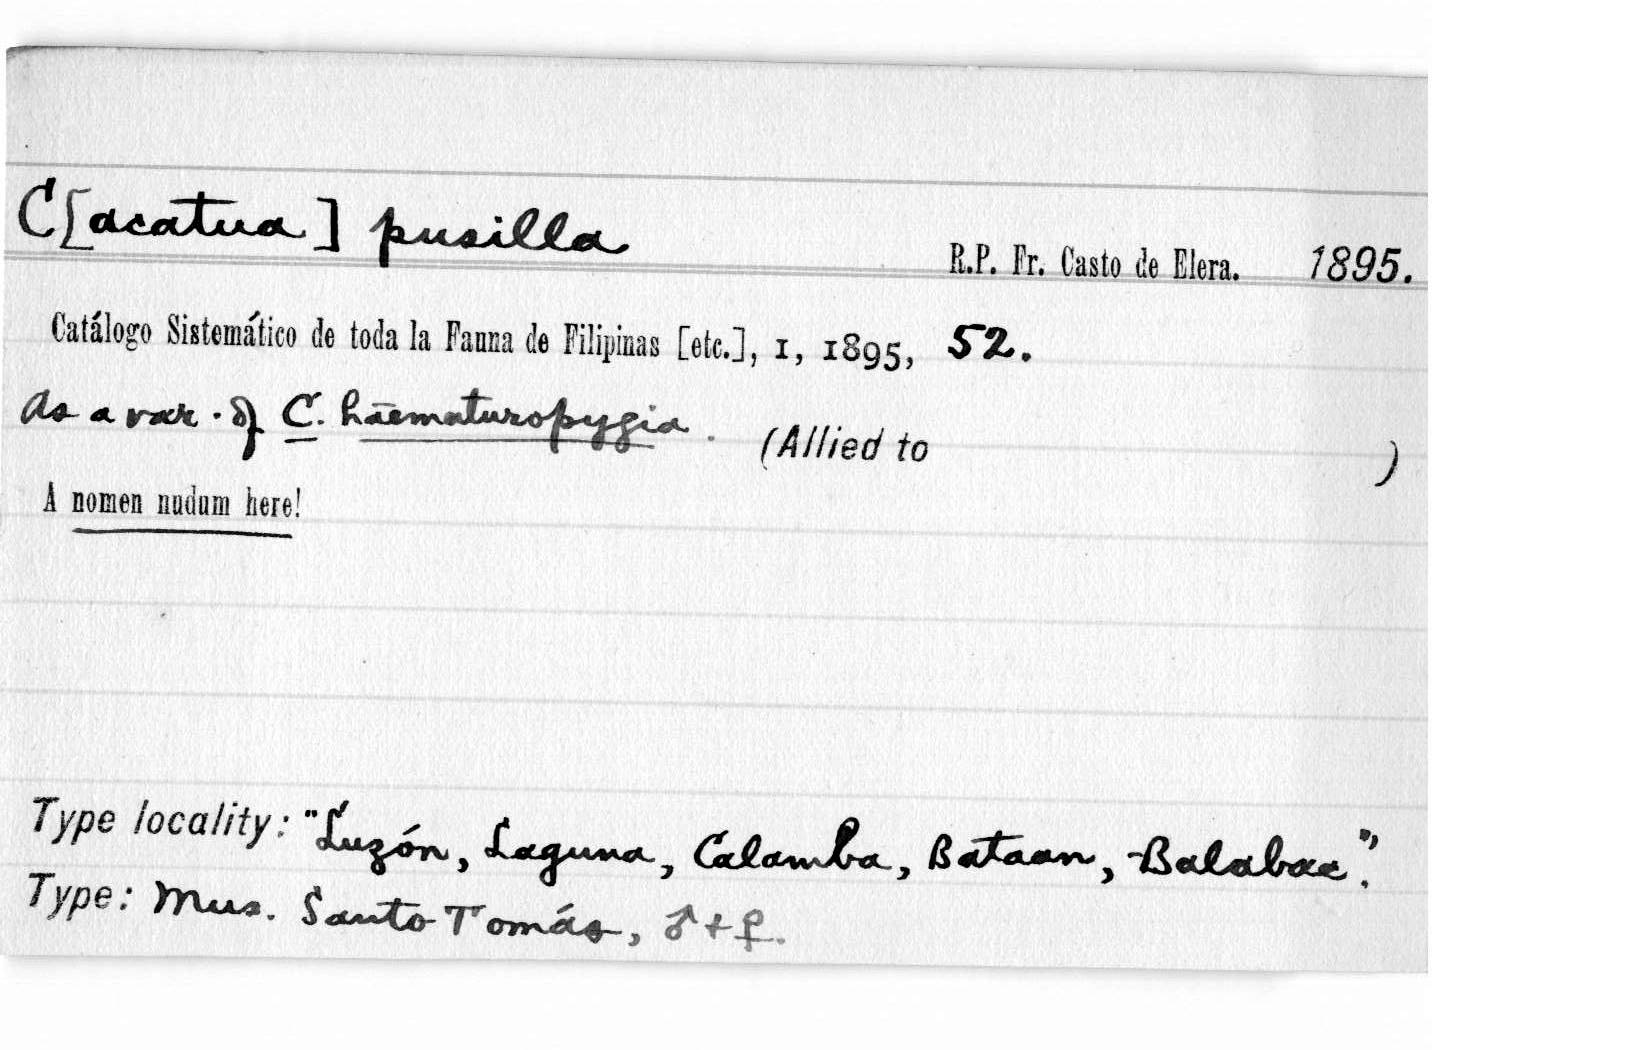 C[acatua] pusilla R.P. Fr. Casto de Elera. 1895.
Catálogo Sistemático de toda la Fauna de Filipinas [etc.], 1, 1895, 52.
As a var. of C. haematuropygia. (Allied to )
A nomen nudum here!
Type locality: "Luzón, Laguna, Calamba, Bataan, Balabac".
Type: Mus. Santo Tomás, ♂ + ♀.